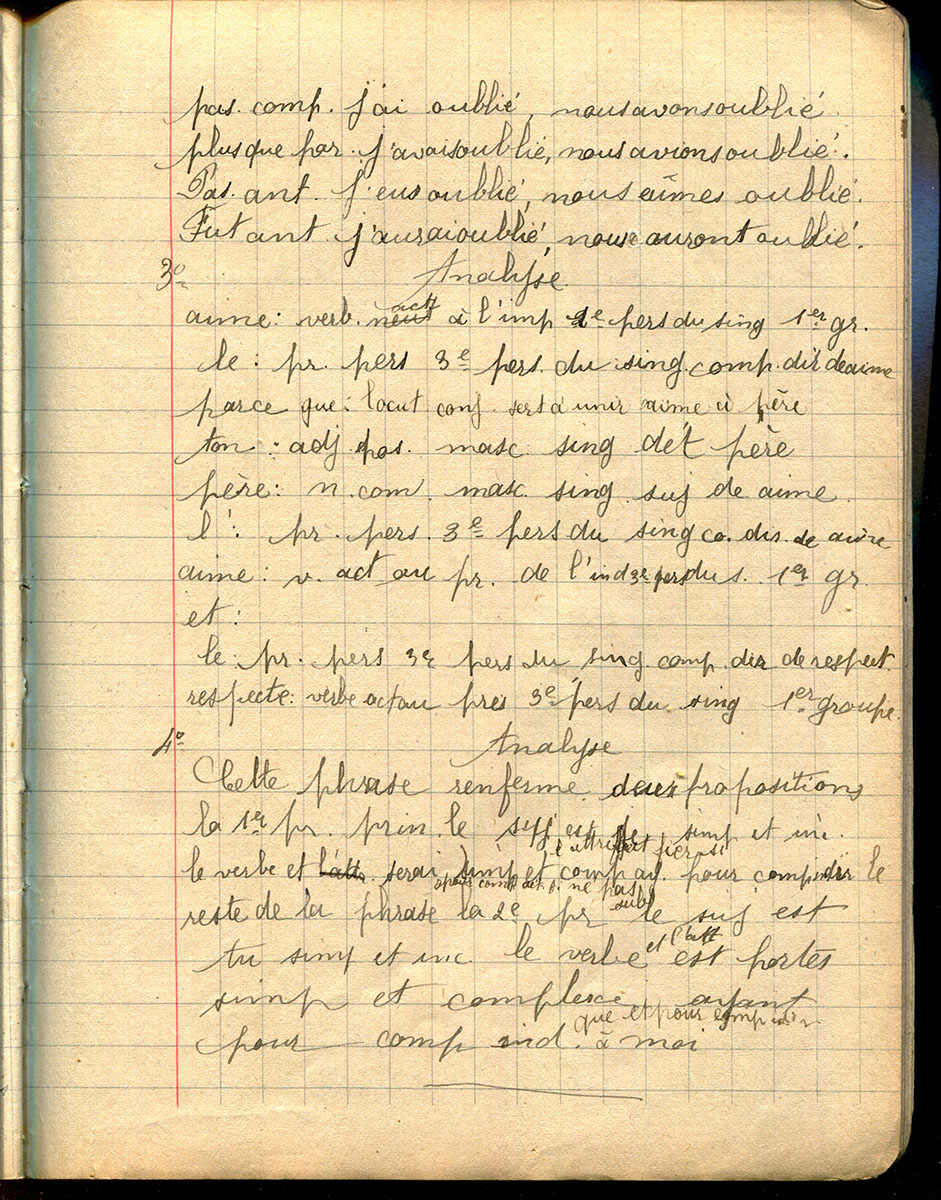 pas. comp. j'ai oublié, nous avons oublié.
plus que par. j'avais oublié, nous avions oublié.
Pas. ant. j'eus oublié, nous eûmes oublié.
Fut ant. j'aurai oublié, nous auront oublié.
3º Analyse
aime: verb. neut act à l'imp 2e pers du sing 1er gr.
le: pr. pers 3e pers. du sing. comp. dir de aime
parce que: locut conj sert à unir aime à père
ton: adj. pos. masc. sing dét père
père: n. com. masc. sing. suj de aime.
l': pr. pers. 3e pers du sing co. dir. de aime
aime: v. act au pr. de l'ind 3e pers du s. 1er gr.
et:
le: pr. pers 3e pers du sing. comp. dir de respect.
respecte: verbe act au pres 3e pers du sing 1er groupe.
4º Analyse
Cette phrase renferme deux propositions
la 1er pr. prin. le suj est simp et inc.
l'attribut
le verbe et l'att. serai simp et comp ay. pour comp dir le
ayant pour comp. ne pas
reste de la phrase la 2e pr sub le suj est
tu simp et inc. le verbe et l'att est portes
simp et complexe ayant
que et pour comp indir.
pour comp ind. à moi